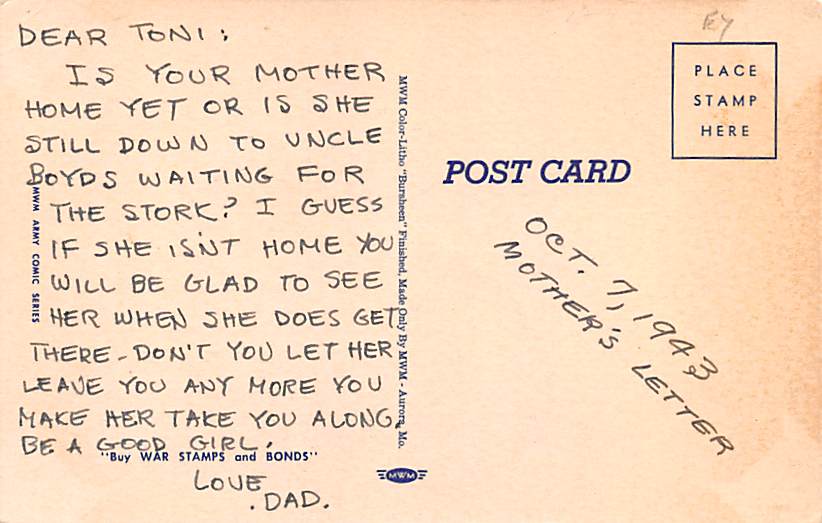 DEAR TONI:
IS YOUR MOTHER
HOME YET OR IS SHE
STILL DOWN TO UNCLE
BOYDS WAITING FOR
THE STORK? I GUESS
IF SHE ISN'T HOME YOU
WILL BE GLAD TO SEE
HER WHEN SHE DOES GET
THERE - DON'T YOU LET HER
LEAVE YOU ANY MORE YOU
MAKE HER TAKE YOU ALONG.
BE A GOOD GIRL.
"Buy WAR STAMPS and BONDS"
LOVE
. DAD.
MWM ARMY COMIC SERIES
MWM Color-Litho "Bursheen" Finished, Made Only By MWM - Aurora, Mo.
MWM
EY
PLACE
STAMP
HERE
POST CARD
OCT. 7, 1943
MOTHER'S LETTER